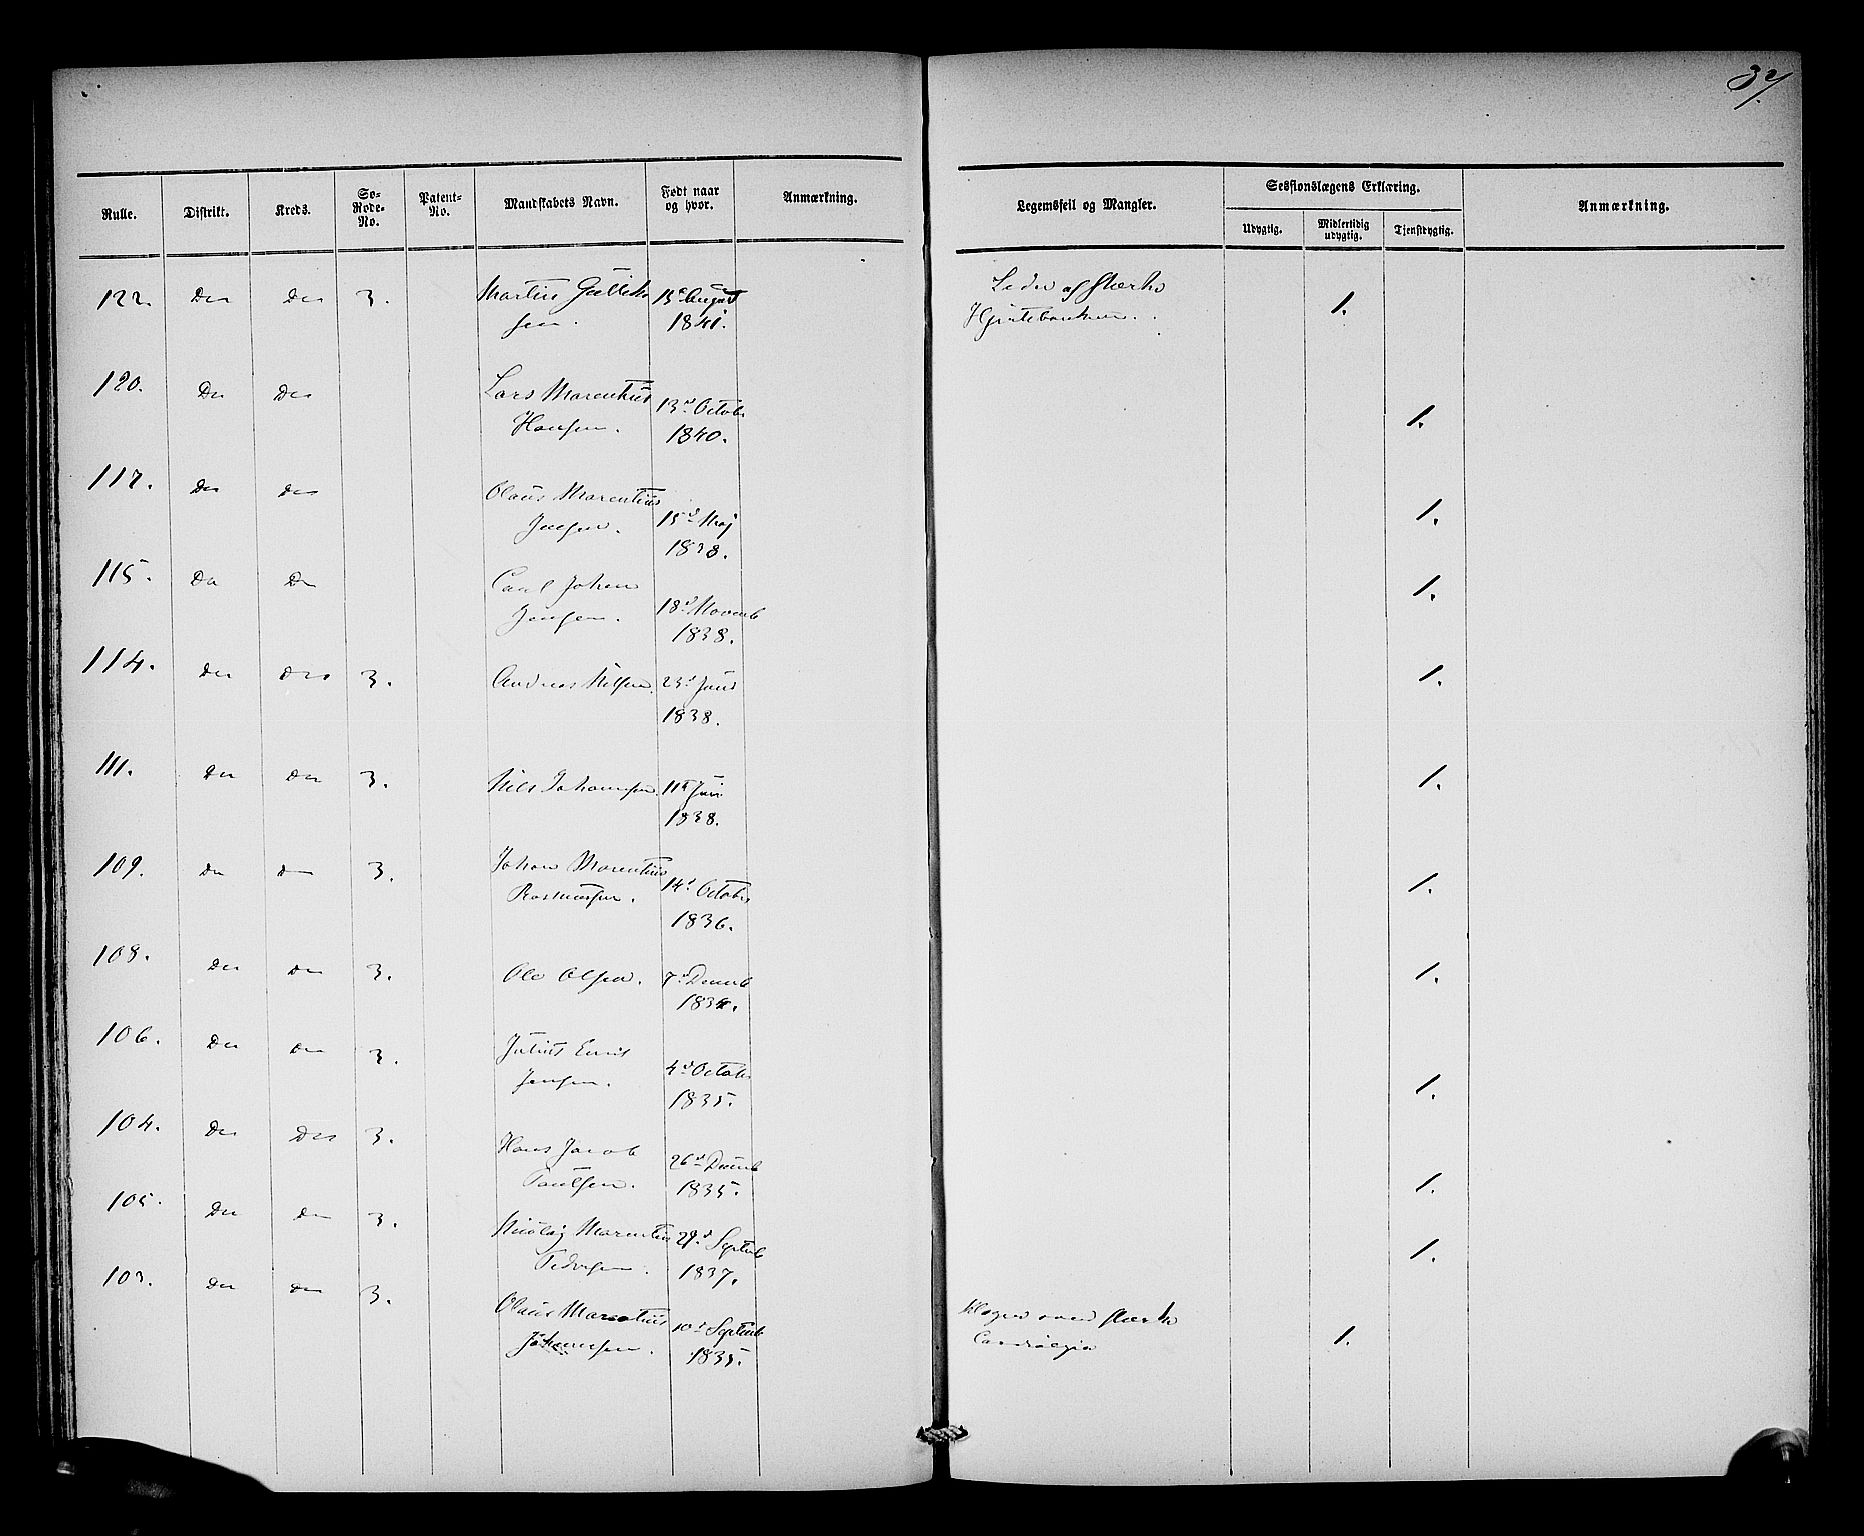 37.
Rulle. Distrikt. Kreds. So-Rode-No. Patent-No. Mandskabets Navn. Født naar og hvor. Anmærkning. Legemsfeil og Mangler. Sessionslægens Erklæring. Anmærkning.
Udygtig. Midlertidig udygtig. Tjenstdygtig.
122. Do Do 3. Martin 15de August Leder af stærke 1.
sen. 1841. Hjertebanken.
120. Do Do Lars Marentius 13de Octobr
Hansen. 1840. 1.
117. Do Do Olaus Marentius 15de Maj 1.
Jensen. 1838.
115. Do Do Carl Johan 18de Novemb 1.
Jensen. 1838.
114. Do Do 3. Andreas Nilsen. 23de Juni 1.
1838.
111. Do Do 3. Nils Johannesen. 11te Juni 1.
1838.
109. Do Do 3. Johan Marentius 14de Octobr 1.
Rasmussen. 1836.
108. Do Do 3. Ole Olsen. 7de Decemb 1.
1834.
106. Do Do 3. Julius Emil 4de Octobr 1.
Jensen. 1835.
104. Do Do 3. Hans Jacob 26de Decemb 1.
Paulsen. 1835.
105. Do Do 3. Nicolaj Marentius 29de Septemb 1.
Pedersen. 1837.
103. Do Do 3. Olaus Marentius 10de Septemb Klager over stærk 1.
Johannesen. 1835. Cardialgia